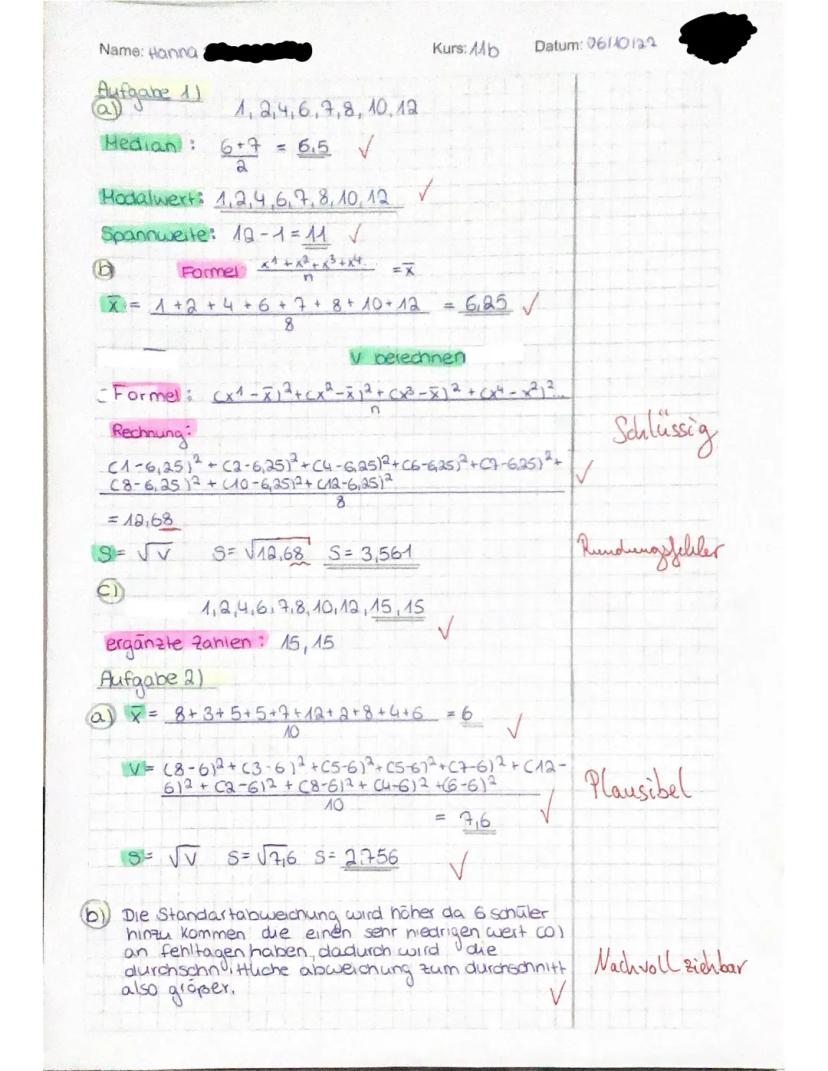 Name: Hanna
Kurs: 11b
Datum: 06/10/22
Aufgabe 1)
a) 1, 2, 4, 6, 7, 8, 10, 12
Median: (6+7)/2 = 6,5 ✓
Modalwert: 1, 2, 4, 6, 7, 8, 10, 12 ✓
Spannweite: 12 - 1 = 11 ✓
b) Formel (x¹ + x² + x³ + x⁴..)/n = x̄
x̄ = (1 + 2 + 4 + 6 + 7 + 8 + 10 + 12)/8 = 6,25 ✓
V berechnen
Formel: ((x¹ - x̄)² + (x² - x̄)² + (x³ - x̄)² + (x⁴ - x²)²...)/n
Rechnung:
Schlüssig
(1-6,25)² + (2-6,25)² + (4-6,25)² + (6-6,25)² + (7-6,25)² +
(8-6,25)² + (10-6,25)² + (12-6,25)² ✓
8
= 12,68
S = √V S = √12,68 S = 3,561
Rundungsfehler
c)
1, 2, 4, 6, 7, 8, 10, 12, 15, 15
ergänzte Zahlen: 15, 15 ✓
Aufgabe 2)
a) x̄ = (8+3+5+5+7+12+2+8+4+6)/10 = 6 ✓
V = (8-6)² + (3-6)² + (5-6)² + (5-6)² + (7-6)² + (12-
6)² + (2-6)² + (8-6)² + (4-6)² + (6-6)²
Plausibel
10
= 7,6 ✓
S = √V S = √7,6 S = 2.756 ✓
b) Die Standartabweichung wird höher da 6 schüler
hinzu kommen die einen sehr niedrigen wert (0)
an fehltagen haben, dadurch wird die
durchschnittliche abweichung zum durchschnitt
also größer. ✓
Nachvollziehbar